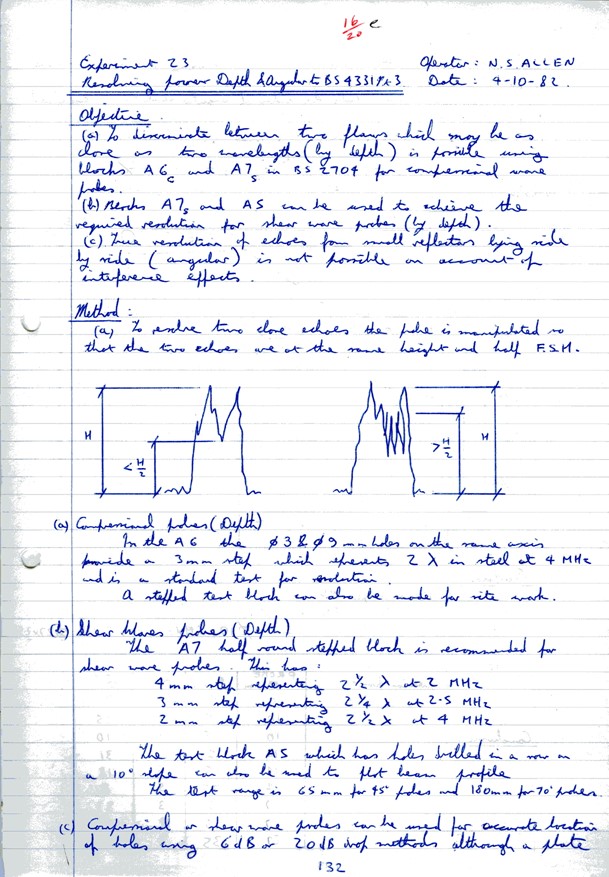 16/20 e
Experiment 23. Operator: N.S.ALLEN
Resolving power Depth & Angular to BS 4331 Pt 3 Date: 4-10-82.
Objective.
(a) To discriminate between two flaws which may be as
close as two wavelengths (by depth) is possible using
blocks A6c and A7s in BS 2704 for compressional wave
probes.
(b) Blocks A7s and A5 can be used to achieve the
required resolution for shear wave probes (by depth).
(c) True resolution of echoes from small reflectors lying side
by side (angular) is not possible on account of
interference effects.
Method:
(a) To resolve two close echoes the probe is manipulated so
that the two echoes are at the same height and half F.S.H.
H < H/2 > H/2 H
(a) Compressional probes (Depth)
In the A6 the ϕ3 & ϕ9 mm holes on the same axis
provide a 3mm step which represents 2 λ in steel at 4 MHz
and is a standard test for resolution.
A stepped test block can also be made for site work.
(b) Shear Waves probes (Depth)
The A7 half round stepped block is recommended for
shear wave probes. This has:
4mm step representing 2½ λ at 2 MHz
3mm step representing 2¼ λ at 2.5 MHz
2mm step representing 2½ λ at 4 MHz
The test block A5 which has holes drilled in a row on
a 10° slope can also be used to plot beam profile
The test range is 65mm for 45° probes and 180mm for 70° probes.
(c) Compressional or shear wave probes can be used for accurate location
of holes using 6dB or 20dB drop methods although a plate
132